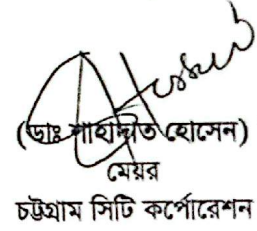 (ডাঃ শাহাদাত হোসেন)
মেয়র
চট্টগ্রাম সিটি কর্পোরেশন